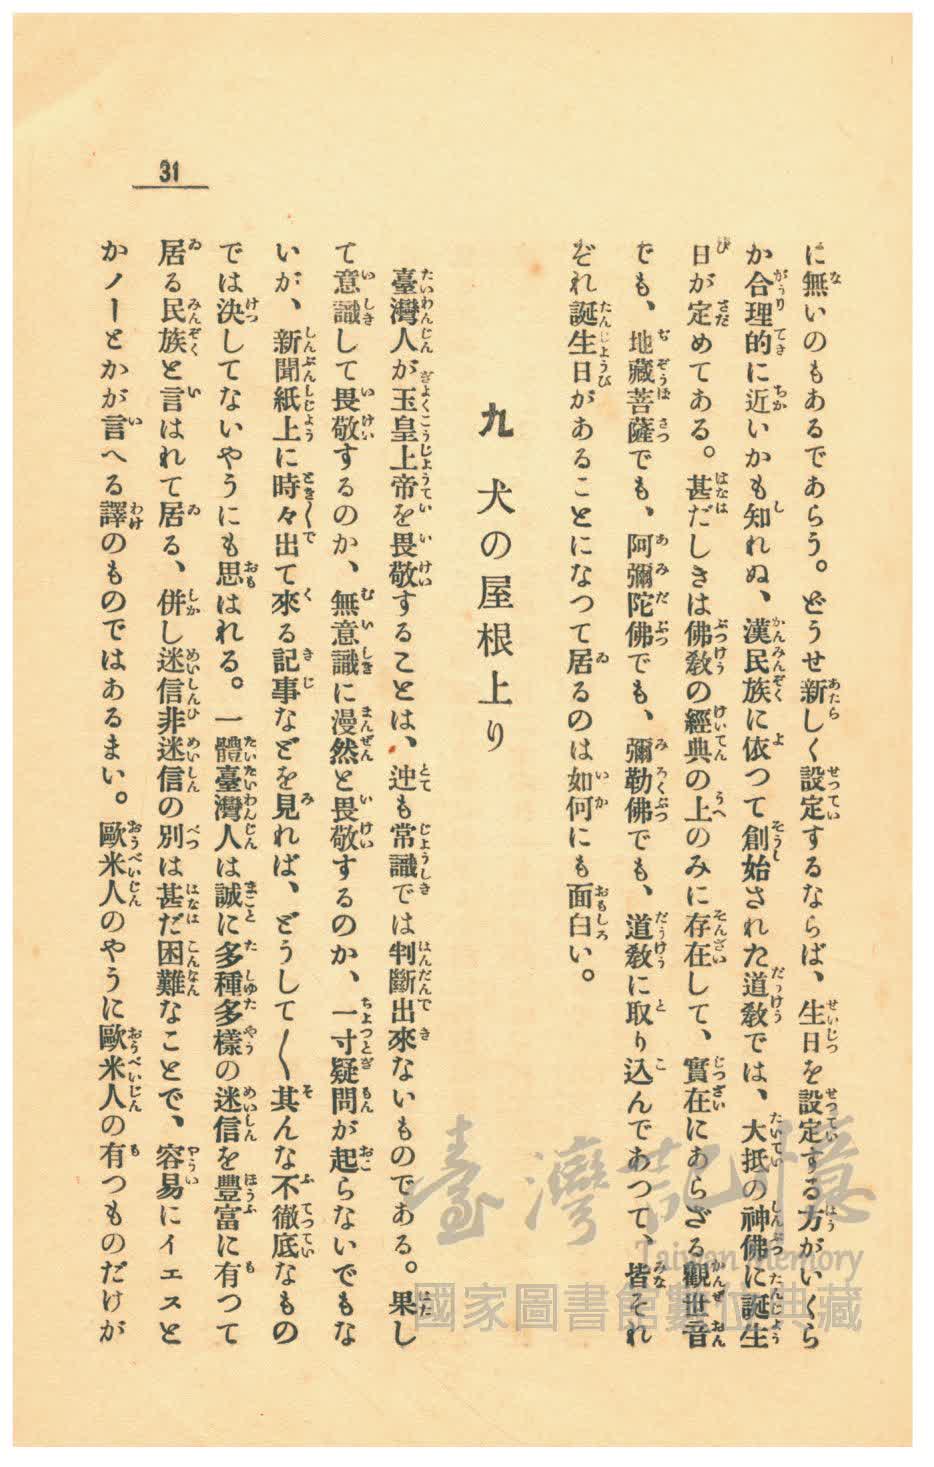 31
に無いのもあるであらう。どうせ新しく設定するならば、生日を設定する方がいくら
か合理的に近いかも知れぬ、漢民族に依つて創始された道敎では、大抵の神佛に誕生
日が定めてある。甚だしきは佛敎の經典の上のみに存在して、實在にあらざる觀世音
でも、地藏菩薩でも、阿彌陀佛でも、彌勒佛でも、道敎に取り込んであつて、皆それ
ぞれ誕生日があることになつて居るのは如何にも面白い。
九 犬の屋根上り
臺灣人が玉皇上帝を畏敬することは、迚も常識では判斷出來ないものである。果し
て意識して畏敬するのか、無意識に漫然と畏敬するのか、一寸疑問が起らないでもな
いが、新聞紙上に時々出て來る記事などを見れば、どうして〱其んな不徹底なもの
では決してないやうにも思はれる。一體臺灣人は誠に多種多樣の迷信を豐富に有つて
居る民族と言はれて居る、併し迷信非迷信の別は甚だ困難なことで、容易にイエスと
かノーとかが言へる譯のものではあるまい。歐米人のやうに歐米人の有つものだけが
臺灣記憶
Taiwan Memory
國家圖書館數位典藏